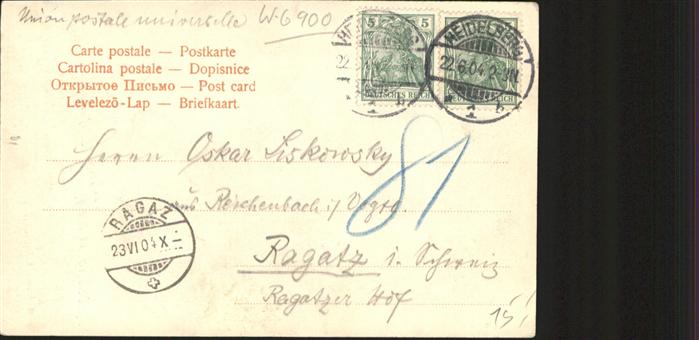 Union postale universelle W6900
Carte postale — Postkarte
Cartolina postale — Dopisnice
Открытое Письмо — Post card
Levelező-Lap — Briefkaart.
5 5
DEUTSCHES REICH
HEIDELBERG
22.6.04
1 b
DEUTSCHES REICH
81
Herrn Oskar Liskowsky
aus Reichenbach i/ Vogtl.
RAGAZ
23 VI 04 X
Ragatz i. Schweiz
Ragatzer Hof
15